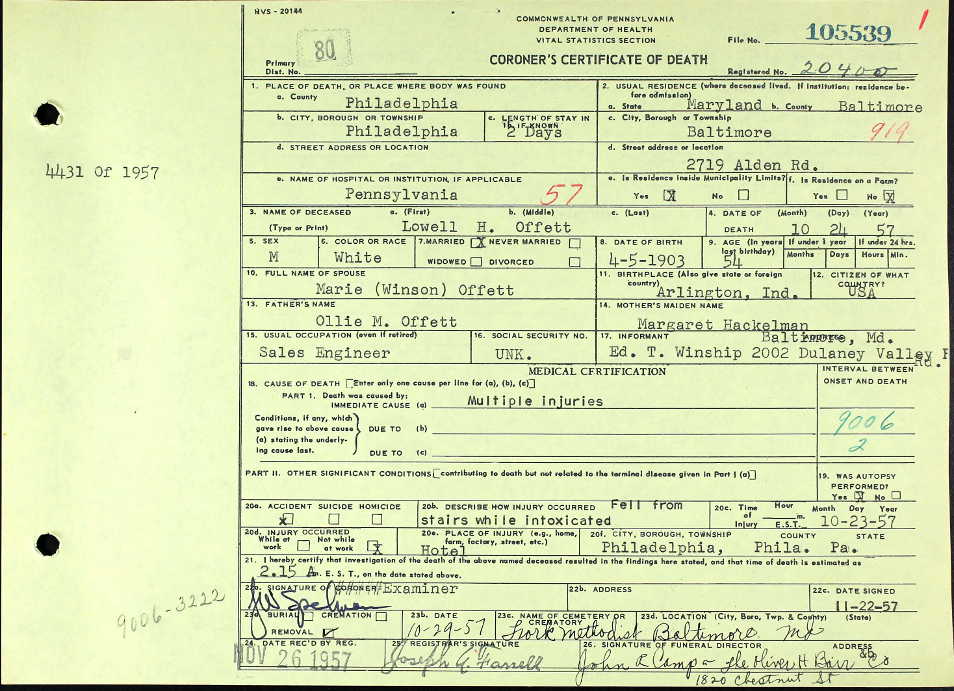 HVS - 20144
COMMONWEALTH OF PENNSYLVANIA
DEPARTMENT OF HEALTH
VITAL STATISTICS SECTION
CORONER'S CERTIFICATE OF DEATH
File No. 105539
1
Primary
Dist. No.
80
Registered No. 20400
1. PLACE OF DEATH, OR PLACE WHERE BODY WAS FOUND
a. County Philadelphia
2. USUAL RESIDENCE (where deceased lived. If institution: residence before admission)
a. State Maryland b. County Baltimore
b. CITY, BOROUGH OR TOWNSHIP
Philadelphia
c. LENGTH OF STAY IN 1b IF KNOWN
2 Days
c. City, Borough or Township
Baltimore 919
d. STREET ADDRESS OR LOCATION
d. Street address or location
2719 Alden Rd.
4431 Of 1957
e. NAME OF HOSPITAL OR INSTITUTION, IF APPLICABLE
Pennsylvania 57
e. Is Residence Inside Municipality Limits? f. Is Residence on a Farm?
Yes X No Yes No X
3. NAME OF DECEASED a. (First) b. (Middle) c. (Last)
(Type or Print) Lowell H. Offett
4. DATE OF (Month) (Day) (Year)
DEATH 10 24 57
5. SEX
M
6. COLOR OR RACE
White
7. MARRIED X NEVER MARRIED
WIDOWED DIVORCED
8. DATE OF BIRTH
4-5-1903
9. AGE (In years last birthday)
54
If under 1 year If under 24 hrs.
Months Days Hours Min.
10. FULL NAME OF SPOUSE
Marie (Winson) Offett
11. BIRTHPLACE (Also give state or foreign country)
Arlington, Ind.
12. CITIZEN OF WHAT COUNTRY?
USA
13. FATHER'S NAME
Ollie M. Offett
14. MOTHER'S MAIDEN NAME
Margaret Hackelman
15. USUAL OCCUPATION (even if retired)
Sales Engineer
16. SOCIAL SECURITY NO.
UNK.
17. INFORMANT ADDRESS
Baltimore, Md.
Ed. T. Winship 2002 Dulaney Valley
Rd.
MEDICAL CERTIFICATION
18. CAUSE OF DEATH [Enter only one cause per line for (a), (b), (c)]
INTERVAL BETWEEN
ONSET AND DEATH
PART 1. Death was caused by:
IMMEDIATE CAUSE (a) Multiple injuries
Conditions, if any, which
gave rise to above cause
(a) stating the underly-
ing cause last.
DUE TO (b)
DUE TO (c)
9006
2
PART II. OTHER SIGNIFICANT CONDITIONS [contributing to death but not related to the terminal disease given in Part I (a)]
19. WAS AUTOPSY
PERFORMED?
Yes X No
20a. ACCIDENT SUICIDE HOMICIDE
x
20b. DESCRIBE HOW INJURY OCCURRED Fell from
stairs while intoxicated
20c. Time of Injury
Hour m. Month Day Year
E.S.T. 10-23-57
20d. INJURY OCCURRED
While at work Not while at work X
20e. PLACE OF INJURY (e.g., home, farm, factory, street, etc.)
Hotel
20f. CITY, BOROUGH, TOWNSHIP COUNTY STATE
Philadelphia, Phila. Pa.
21. I hereby certify that investigation of the death of the above named deceased resulted in the findings here stated, and that time of death is estimated as
2.15 A m. E. S. T., on the date stated above.
22a. SIGNATURE OF CORONER Examiner
JW Spelman
22b. ADDRESS
22c. DATE SIGNED
11-22-57
9006-3222
23a. BURIAL CREMATION
REMOVAL
23b. DATE
10-29-57
23c. NAME OF CEMETERY OR CREMATORY
Fork Methodist
23d. LOCATION (City, Boro, Twp. & County) (State)
Baltimore Md
24. DATE REC'D BY REG.
NOV 26 1957
25. REGISTRAR'S SIGNATURE
Joseph A. Farrell
26. SIGNATURE OF FUNERAL DIRECTOR ADDRESS
John R Camp
The Oliver H Bair Co
1820 Chestnut St